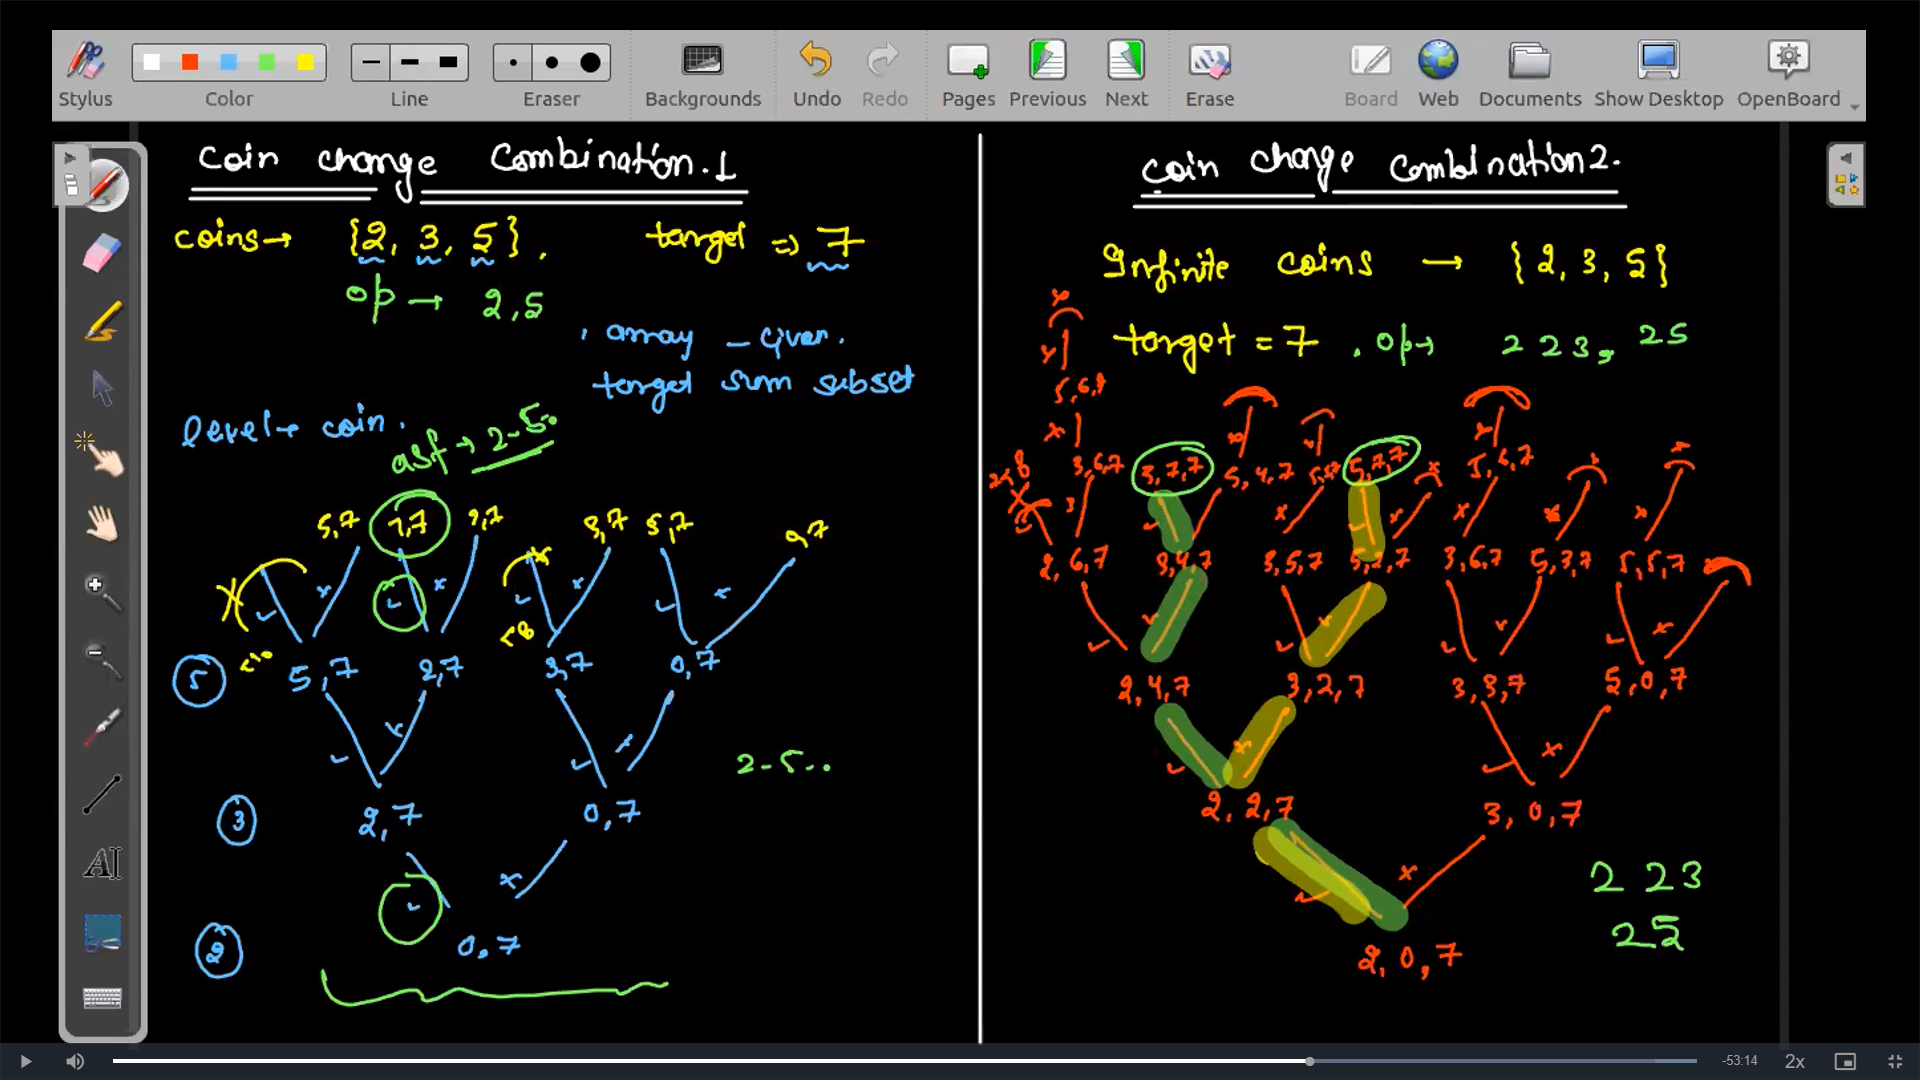 Stylus Color Line Eraser Backgrounds Undo Redo Pages Previous Next Erase Board Web Documents Show Desktop OpenBoard
coin change Combination.1
coins→ {2, 3, 5}. target ⇒ 7
op → 2,5
. array – Given.
target sum subset
level→ coin.
asf → 2-5.
5,7 7,7 2,7 3,7 5,7 0,7
5 5,7 2,7 3,7 0,7
2-5..
3 2,7 0,7
2 0,7
coin change Combination2.
Infinite coins → {2, 3, 5}
target = 7 . op→ 2 2 3, 2 5
5,6,7
3,6,7 3,7,7 5,4,7 5,5,7 5,7,7 5,6,7
2,6,7 3,4,7 3,5,7 5,2,7 3,6,7 5,3,7 5,5,7
2,4,7 3,2,7 3,3,7 5,0,7
2,2,7 3,0,7
2 2 3
2 5
2,0,7
AI
-53:14 2x